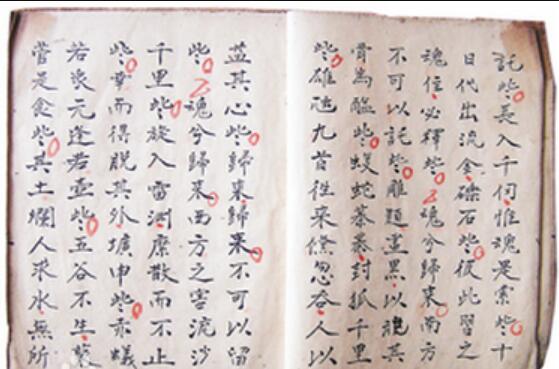 託些長入千仞惟魂是索些十
日代出流金礫石些彼此習之
魂往必釋些魂兮歸來南方
不可以託些雕題黑以其
骨為醢些蝮蛇蓁蓁封狐千里
些雄虺九首徃來倏忽吞人以
益其心些歸來歸来不可以留
些魂兮歸来西方之害流沙
千里些旋入雷淵靡散而不止
些幸而得脫其外壙申些赤蟻
若象元逢若壺些五谷不生藂
菅是食些其土爛人求水無所